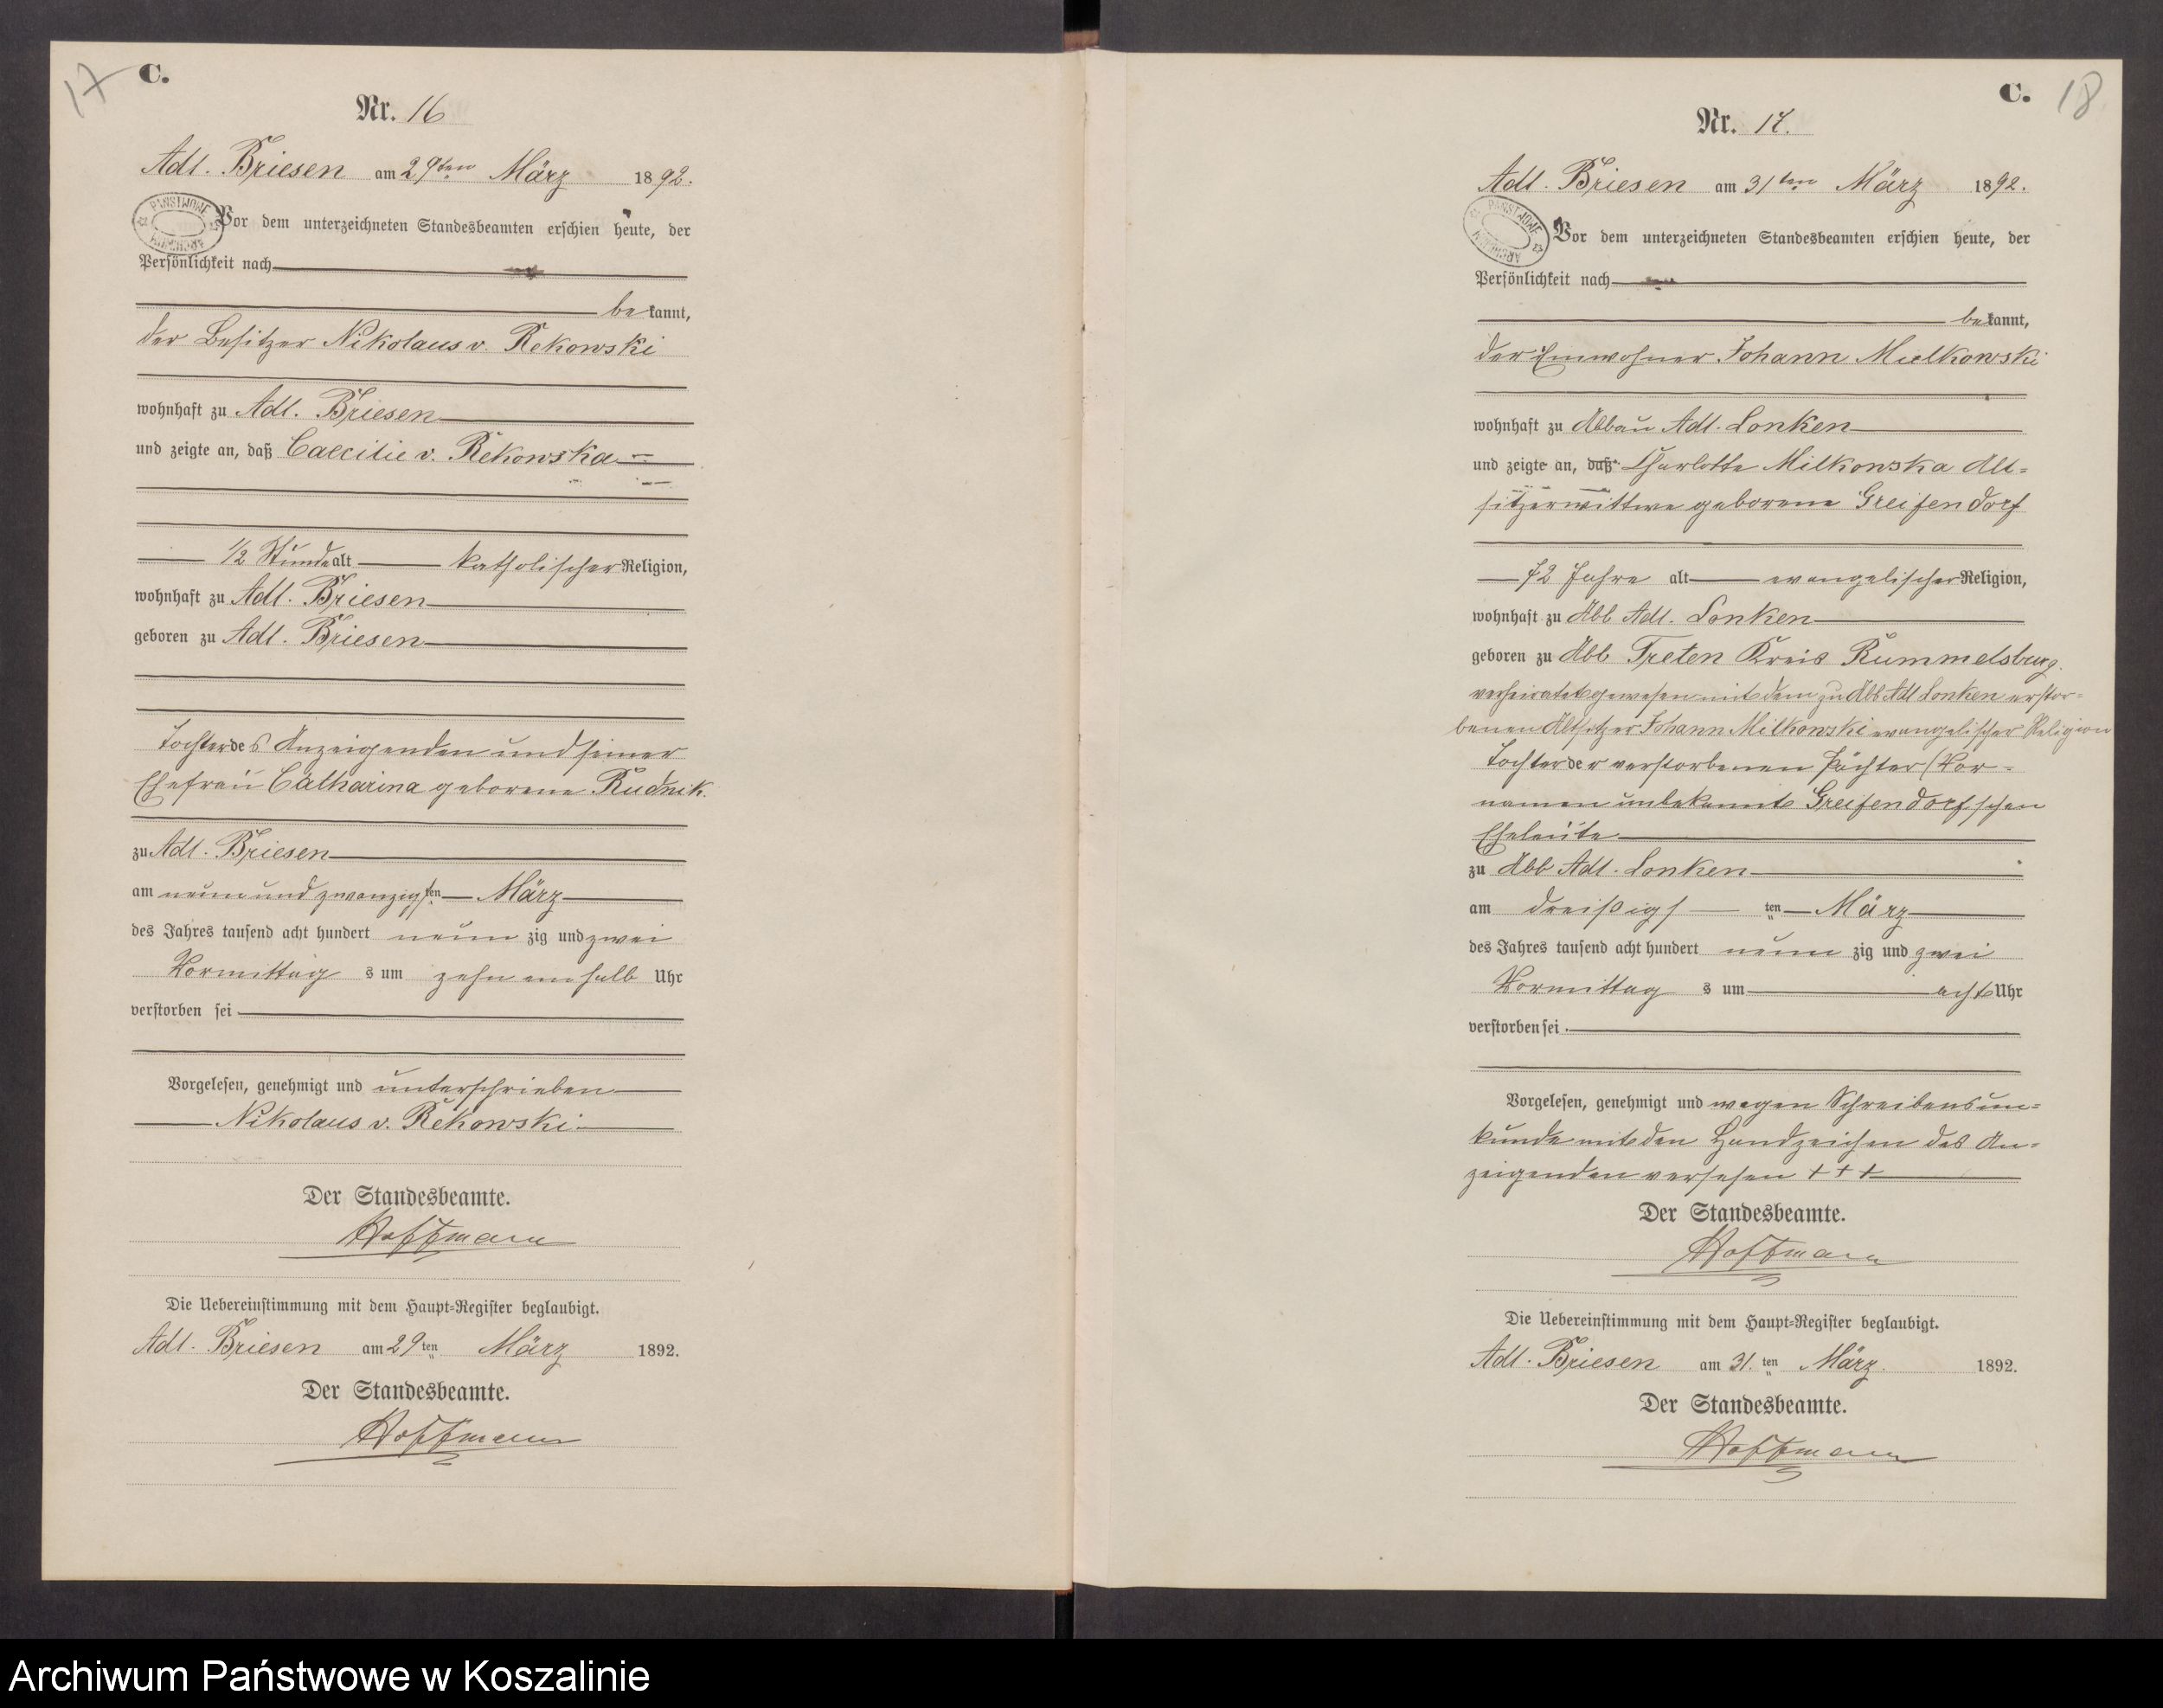 17
C.
Nr. 16
Adl. Briesen am 29ten März 1892.
PAŃSTWOWE ARCHIWUM
Vor dem unterzeichneten Standesbeamten erschien heute, der
Persönlichkeit nach
be kannt,
der Besitzer Nikolaus v. Rekowski
wohnhaft zu Adl. Briesen
und zeigte an, daß Caecilie v. Rekowska
1/2 Stunde alt katholischer Religion,
wohnhaft zu Adl. Briesen
geboren zu Adl. Briesen
Tochter des Anzeigenden und seiner
Ehefrau Catharina geborene Rudnik.
zu Adl. Briesen
am neun und zwanzigsten März
des Jahres tausend acht hundert neun zig und zwei
Vormittag s um zehn ein halb Uhr
verstorben sei
Vorgelesen, genehmigt und unterschrieben
Nikolaus v. Rekowski.
Der Standesbeamte.
Hoffmann
Die Uebereinstimmung mit dem Haupt-Register beglaubigt.
Adl. Briesen am 29ten März 1892.
Der Standesbeamte.
Hoffmann
C.
18
Nr. 17.
Adl. Briesen am 31ten März 1892.
PAŃSTWOWE ARCHIWUM
Vor dem unterzeichneten Standesbeamten erschien heute, der
Persönlichkeit nach
be kannt,
der Einwohner Johann Mielkowski
wohnhaft zu Abbau Adl. Lonken
und zeigte an, daß Charlotte Milkowska Alt=
sitzerwittwe geborene Greifendorf
72 Jahre alt evangelischer Religion,
wohnhaft zu Abb Adl. Lonken
geboren zu Abb Treten Kreis Rummelsburg.
verheiratet gewesen mit dem zu Abb Adl Lonken verstor=
benen Altsitzer Johann Milkowski evangelischer Religion
Tochter der verstorbenen Pächter (Vor-
namen unbekannt Greifendorfschen
Eheleute
zu Abb Adl. Lonken
am dreißigs ten März
des Jahres tausend acht hundert neun zig und zwei
Vormittag s um acht Uhr
verstorben sei
Vorgelesen, genehmigt und wegen Schreibensun=
kunde mit den Handzeichen des An=
zeigenden versehen + + +
Der Standesbeamte.
Hoffmann
Die Uebereinstimmung mit dem Haupt-Register beglaubigt.
Adl. Briesen am 31. ten März. 1892.
Der Standesbeamte.
Hoffmann
Archiwum Państwowe w Koszalinie